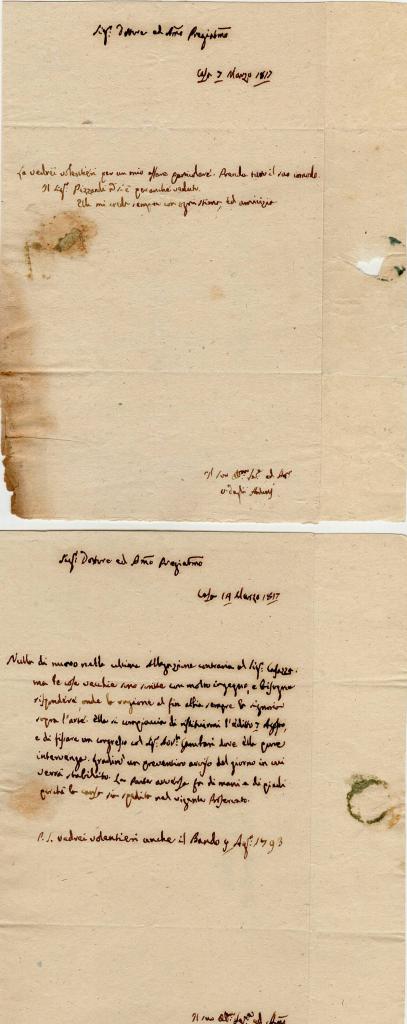 Sig.r Dottore ed Am.o Pregiatmo
Casa 7 Marzo 1817
La vedrei volentieri per un mio affare particolare. Prenda tutto il suo comodo.
Il Sig.r Pizzardi per anche veduto.
Ella mi creda sempre con ogni stima, ed amicizia
Il suo ed
Sig.r Dottore ed Am.o Pregiatmo
Casa 19 Marzo 1817
Nulla di nuovo nella ultima Allegazione contraria al Sig.r
ma le cose vecchie sono scritte con molto ingegno, e bisogna
rispondervi onde la ragione al fin abbia sempre la
sopra l'arte. Ella si compiaccia di restituirmi l'editto 7 Agosto,
e di fissare un congresso col Sig.r dove ella pure
intervenga. Gradirei un preventivo avviso del giorno in cui
verrà stabilito. La parte avversa fa di mani e di piedi
perché la causa sia spedita nel vigente
P.S. vedrei volentieri anche il Bando 9 1793
Il suo